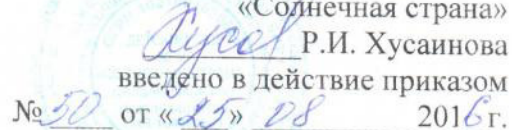 «Солнечная страна»
Р.И. Хусаинова
введено в действие приказом
№ 50 от « 25 » 08 2016 г.